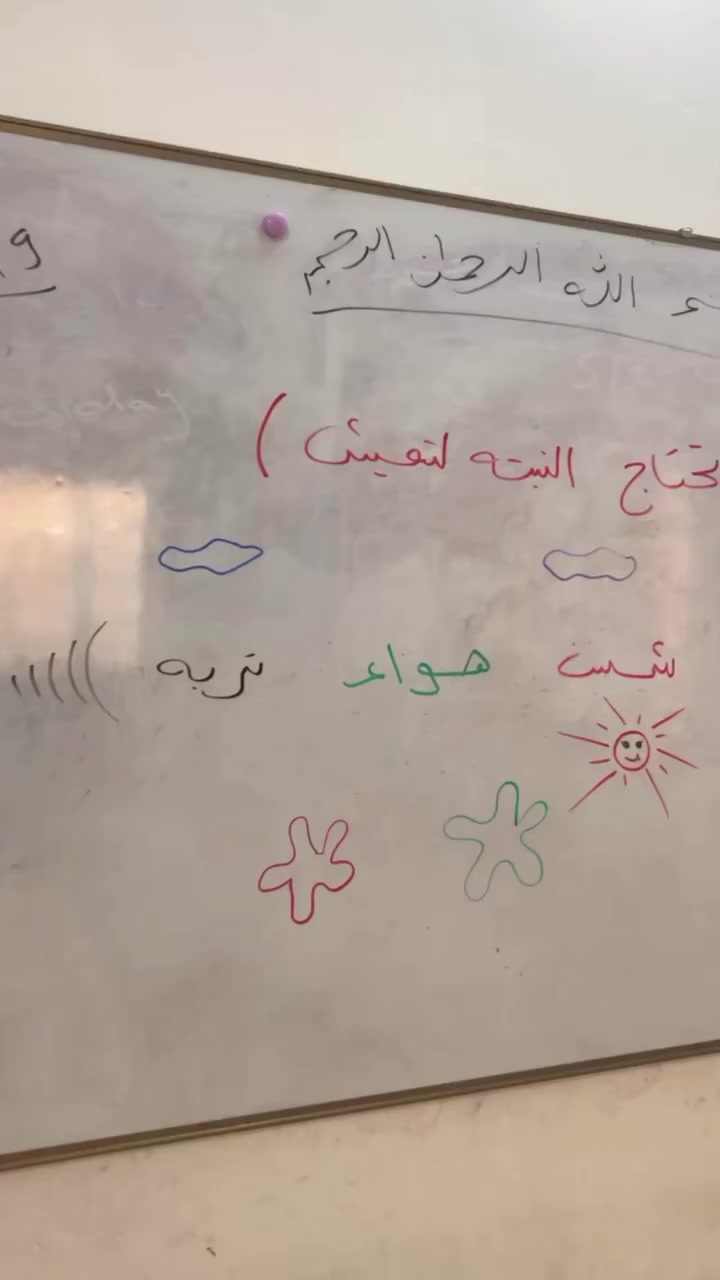 الله الرحمن الرحيم
9
تحتاج النبته لتعيش )
شمس هواء تربه